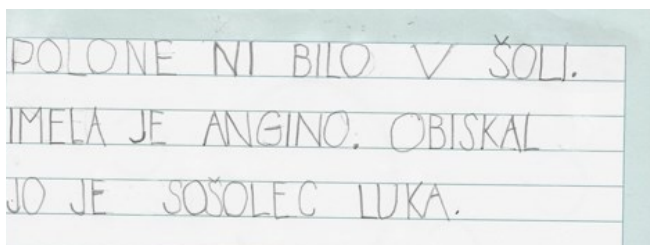 POLONE NI BILO V ŠOLI.
IMELA JE ANGINO. OBISKAL
JO JE SOŠOLEC LUKA.